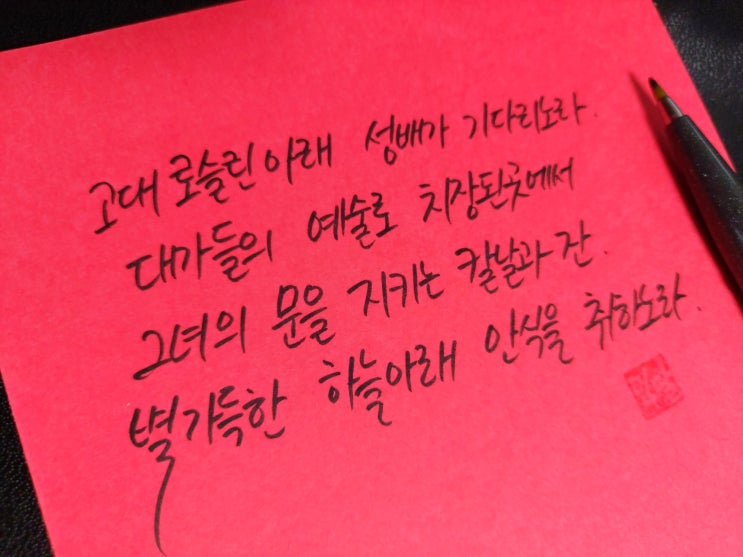 고대 로슬린 아래 성배가 기다리노라.
대가들의 예술로 치장된곳에서
그녀의 문을 지키는 칼날과 잔.
별가득한 하늘아래 안식을 취하노라.